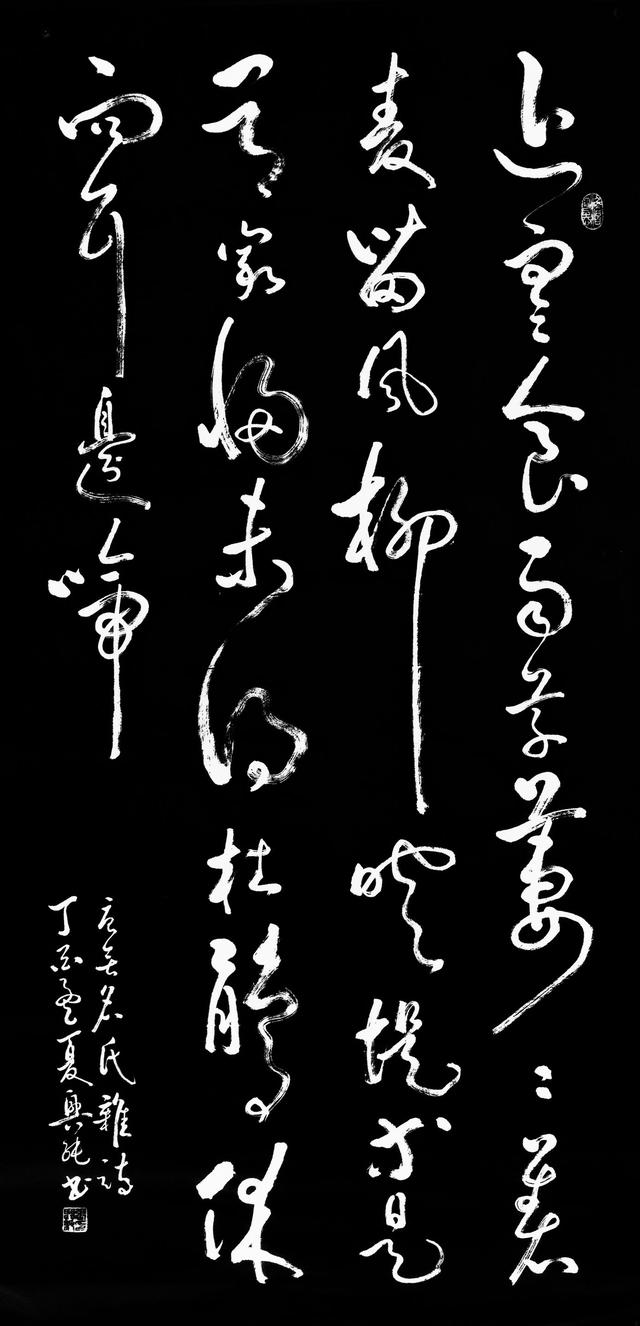 近寒食雨草萋〻著
麦苗风柳映堤等是
有家归未得杜鹃休
向耳邊啼
唐無名氏雜詩
丁酉孟夏興书